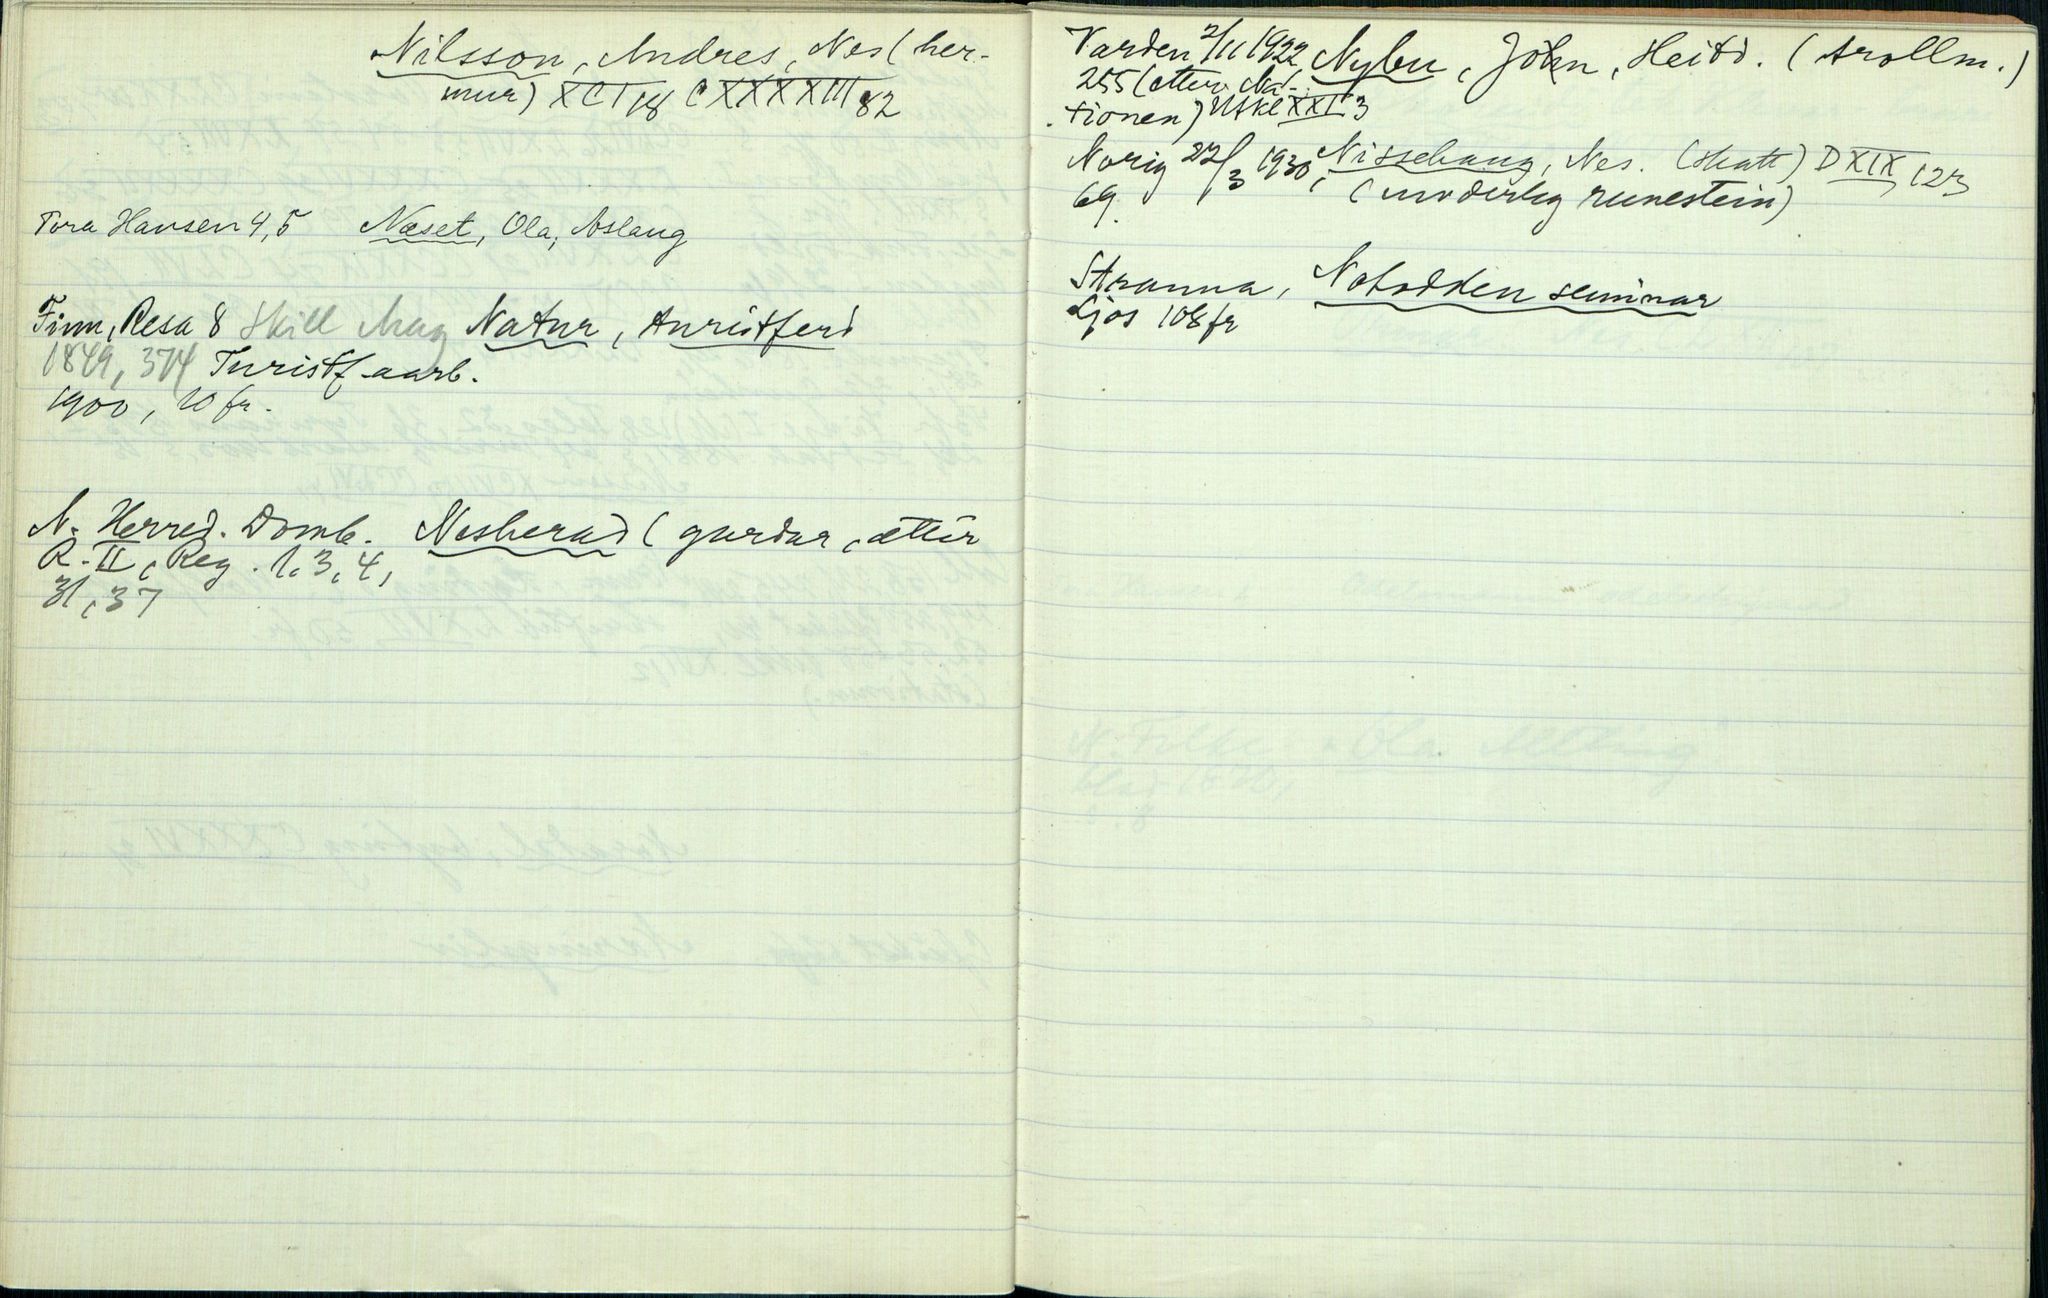 Nilsson, Andres, Nes (her-
mur) XCI 18 CXXXXIII 82
Tora Hansen 4, 5 Næset, Ola, Aslaug
Finn, Resa 8 Skill Mag Natur, turistferd
1849, 374 Turistf-aarb.
1900, 10 fr.
N. Herred. Domb. Nesherad (gardar, ættir
R. II, Reg. 1, 3, 4,
31, 37
Varden 2/11 1922 Nybu, John, Heidd. (trollm.)
255 (etter Na-
tionen) Utkl XXI 3
Norig 22/3 1930, Nissehaug, Nes. (skatt) D XIX 123
69. (underleg runestein)
Stranna, Notodden seminar
Ljos 108 fr